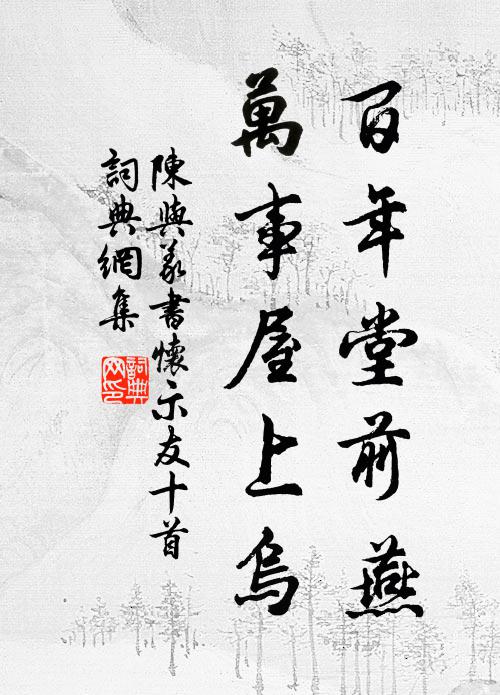 百年堂前燕
萬事屋上烏
陳與義書懷示友十首
詞典網集
詞典
网印